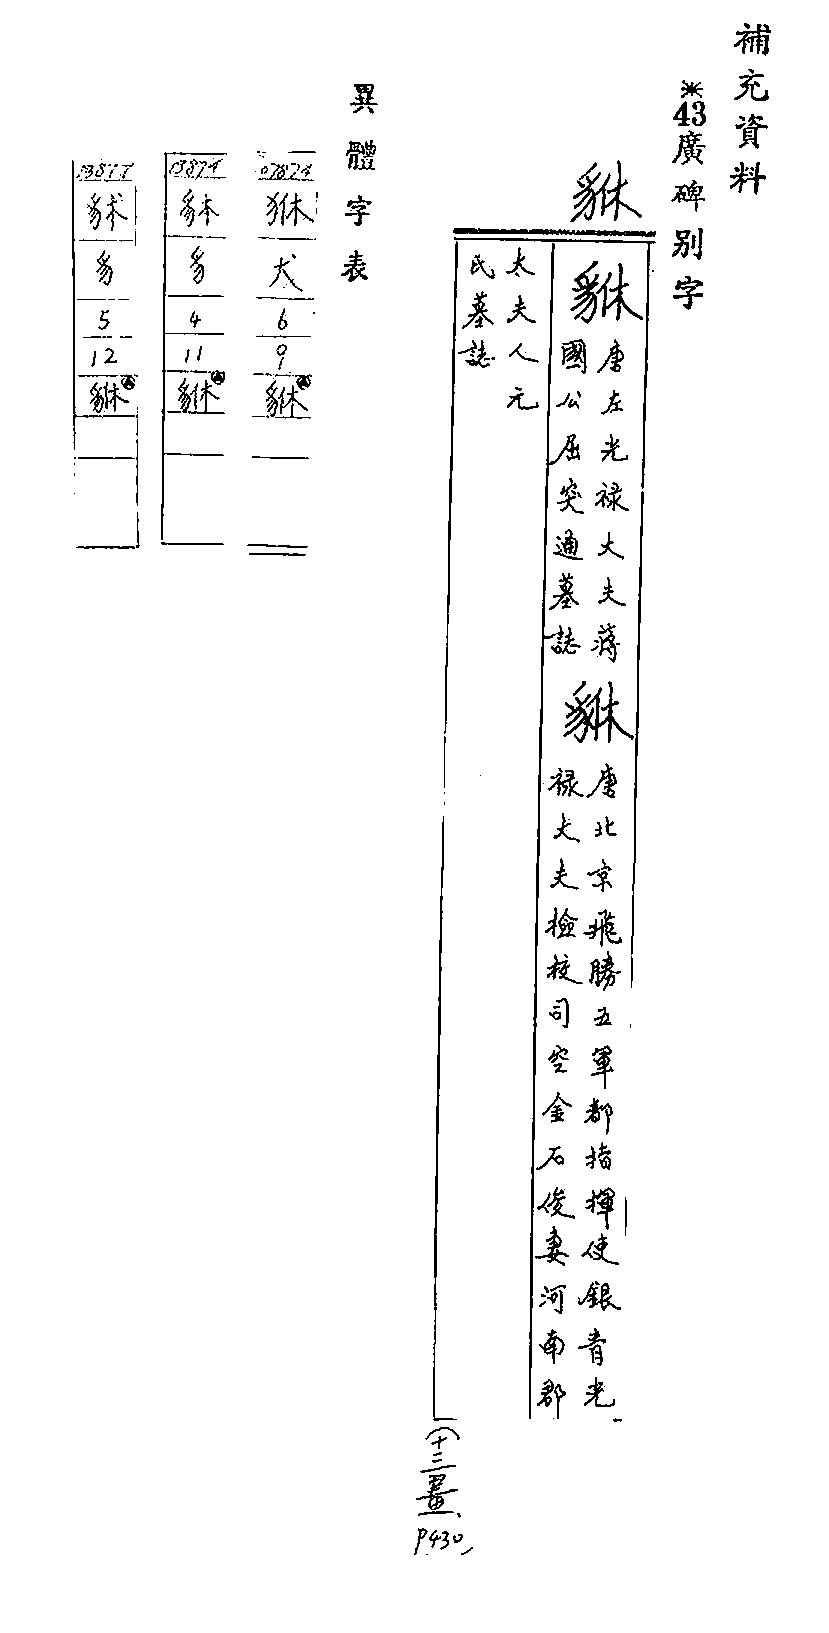 補充資料
※43廣碑別字
貅
貅 唐左光祿大夫蔣
國公屈突通墓誌
貅 唐北京飛勝五軍都指揮使銀青光
祿大夫檢校司空金石俊妻河南郡
太夫人元
氏墓誌
(十二畫、
P430)
異體字表
07874
㹯
犬
6
9
貅
13874
豸
4
11
貅
豸
5
12
貅